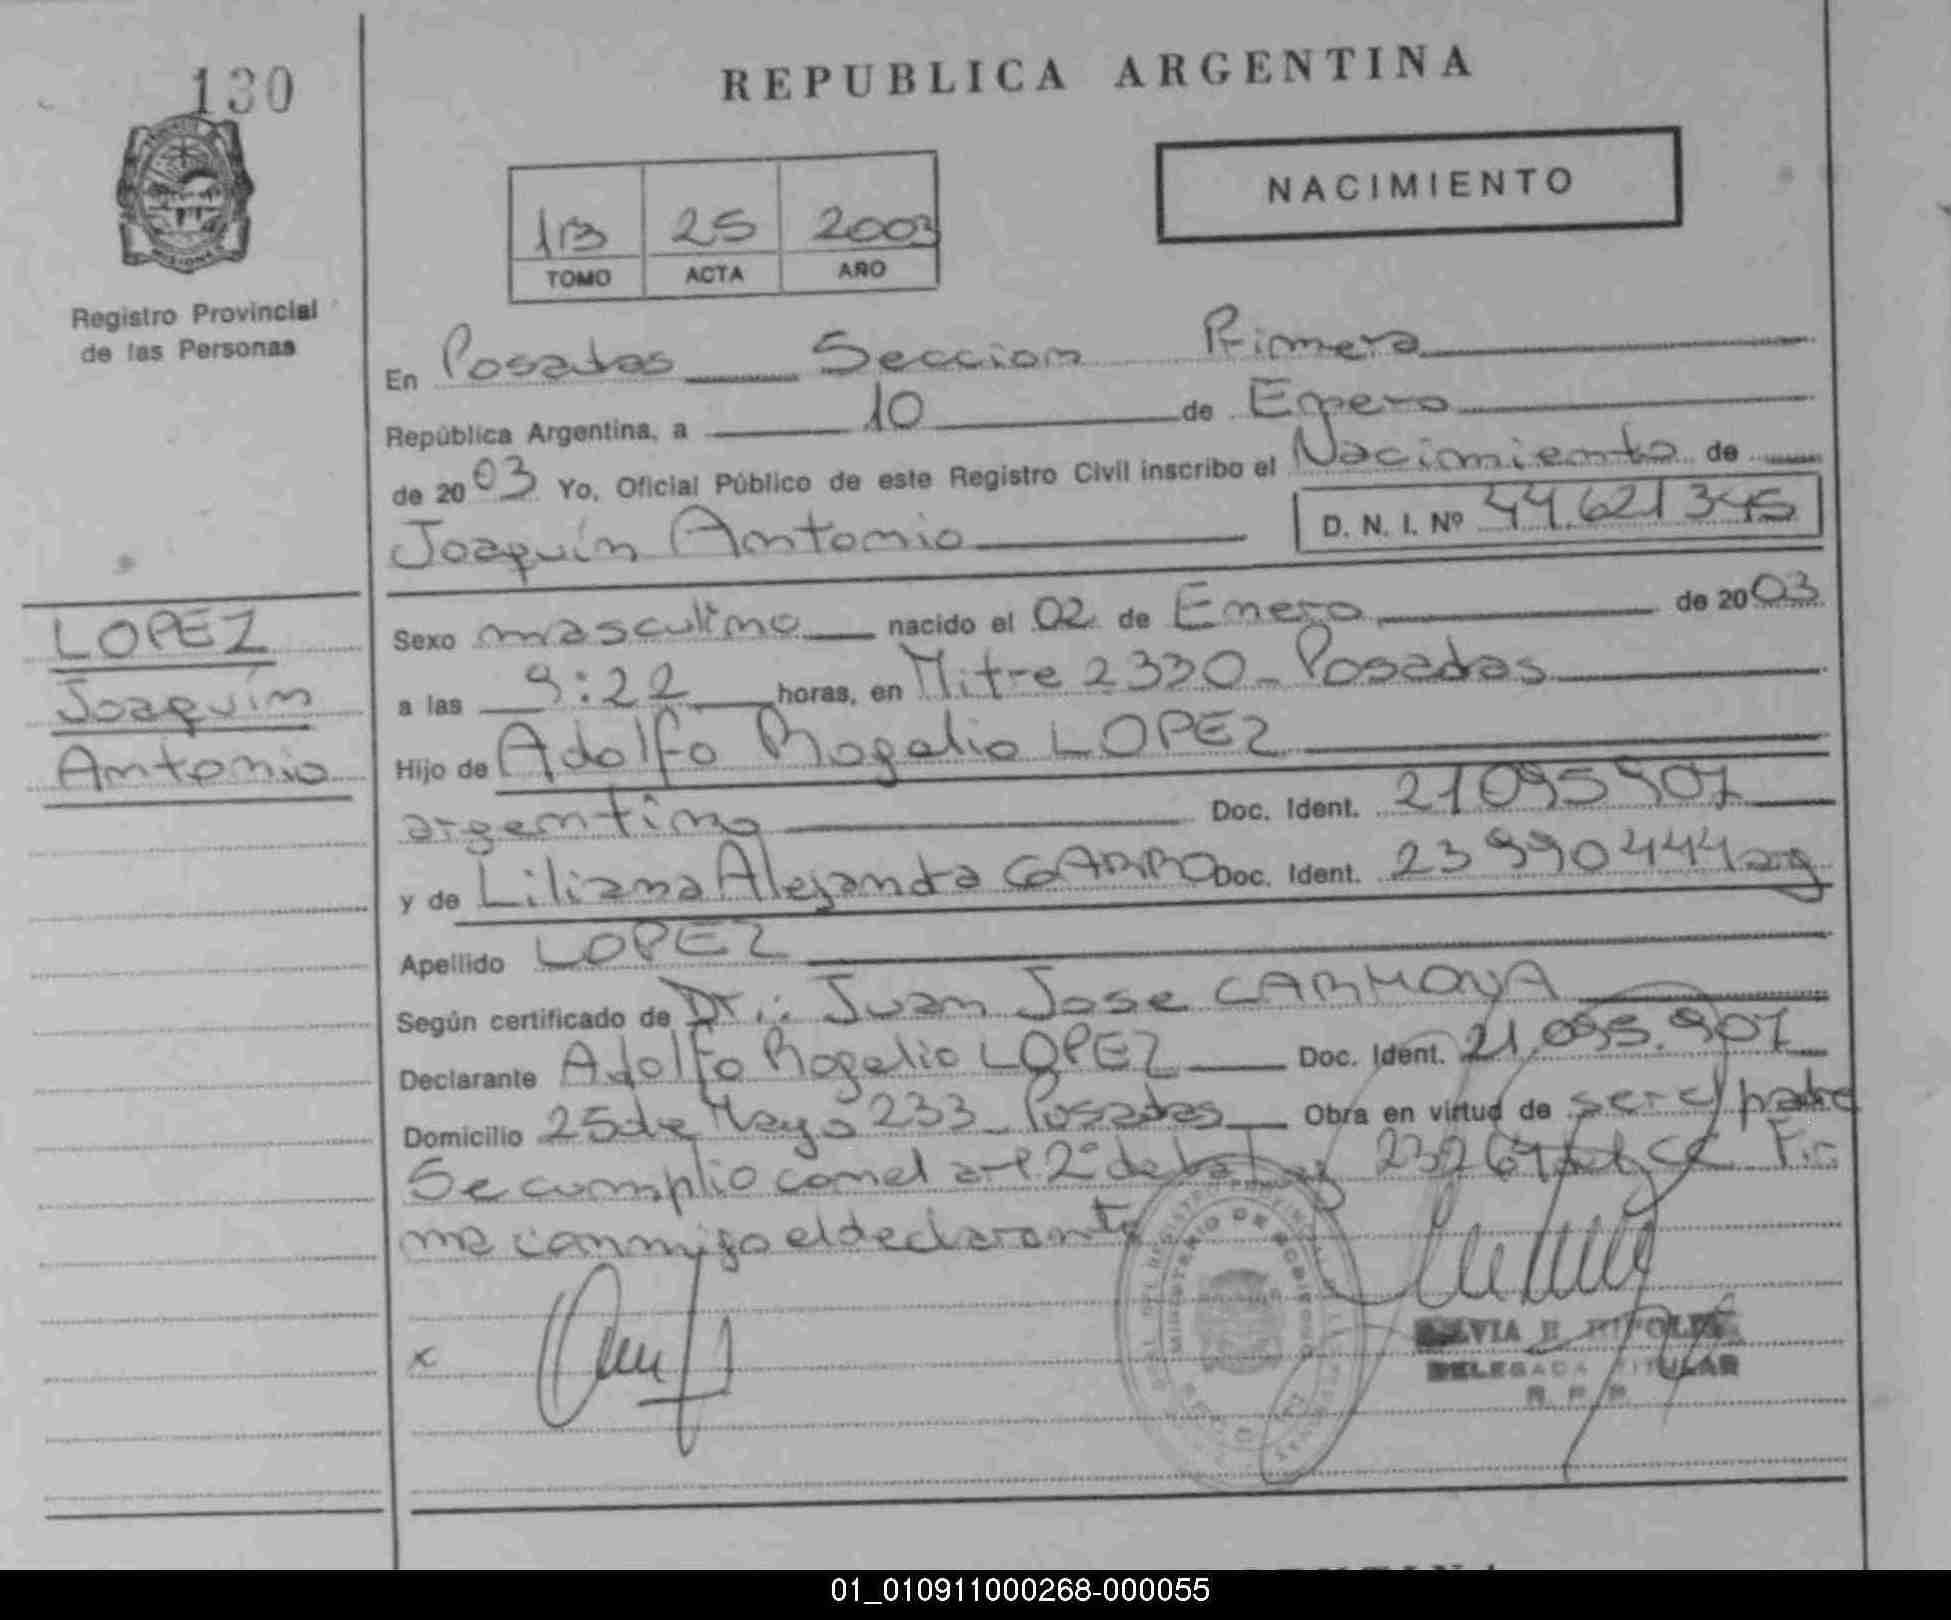 130
REPUBLICA ARGENTINA
NACIMIENTO
1B 25 2003
TOMO ACTA AÑO
MISIONES
Registro Provincial
de las Personas
En Posadas Seccion Primera
República Argentina, a 10 de Enero
de 2003 Yo, Oficial Público de este Registro Civil inscribo el Nacimiento de
Joaquín Antonio D. N. I. Nº 44.621345
LOPEZ
Joaquín
Antonio
Sexo masculino nacido el 02 de Enero de 2003
a las 9:22 horas, en Mitre 2330 - Posadas
Hijo de Adolfo Rogelio LOPEZ
argentino Doc. Ident. 21095907
y de Liliana Alejandra Doc. Ident. 23990444 arg
Apellido LOPEZ
Según certificado de Dr.: Juan Jose CARMONA
Declarante Adolfo Rogelio LOPEZ Doc. Ident. 21.095.907
Domicilio 25 de Mayo 233 - Posadas Obra en virtud de ser el padre
Se cumplio con el art 2º de la Ley 23264 del CC Fir
ma conmigo el declarante
MINISTERIO DE GOBIERNO
x
DELEGADA TITULAR
R. P. P.
01_010911000268-000055